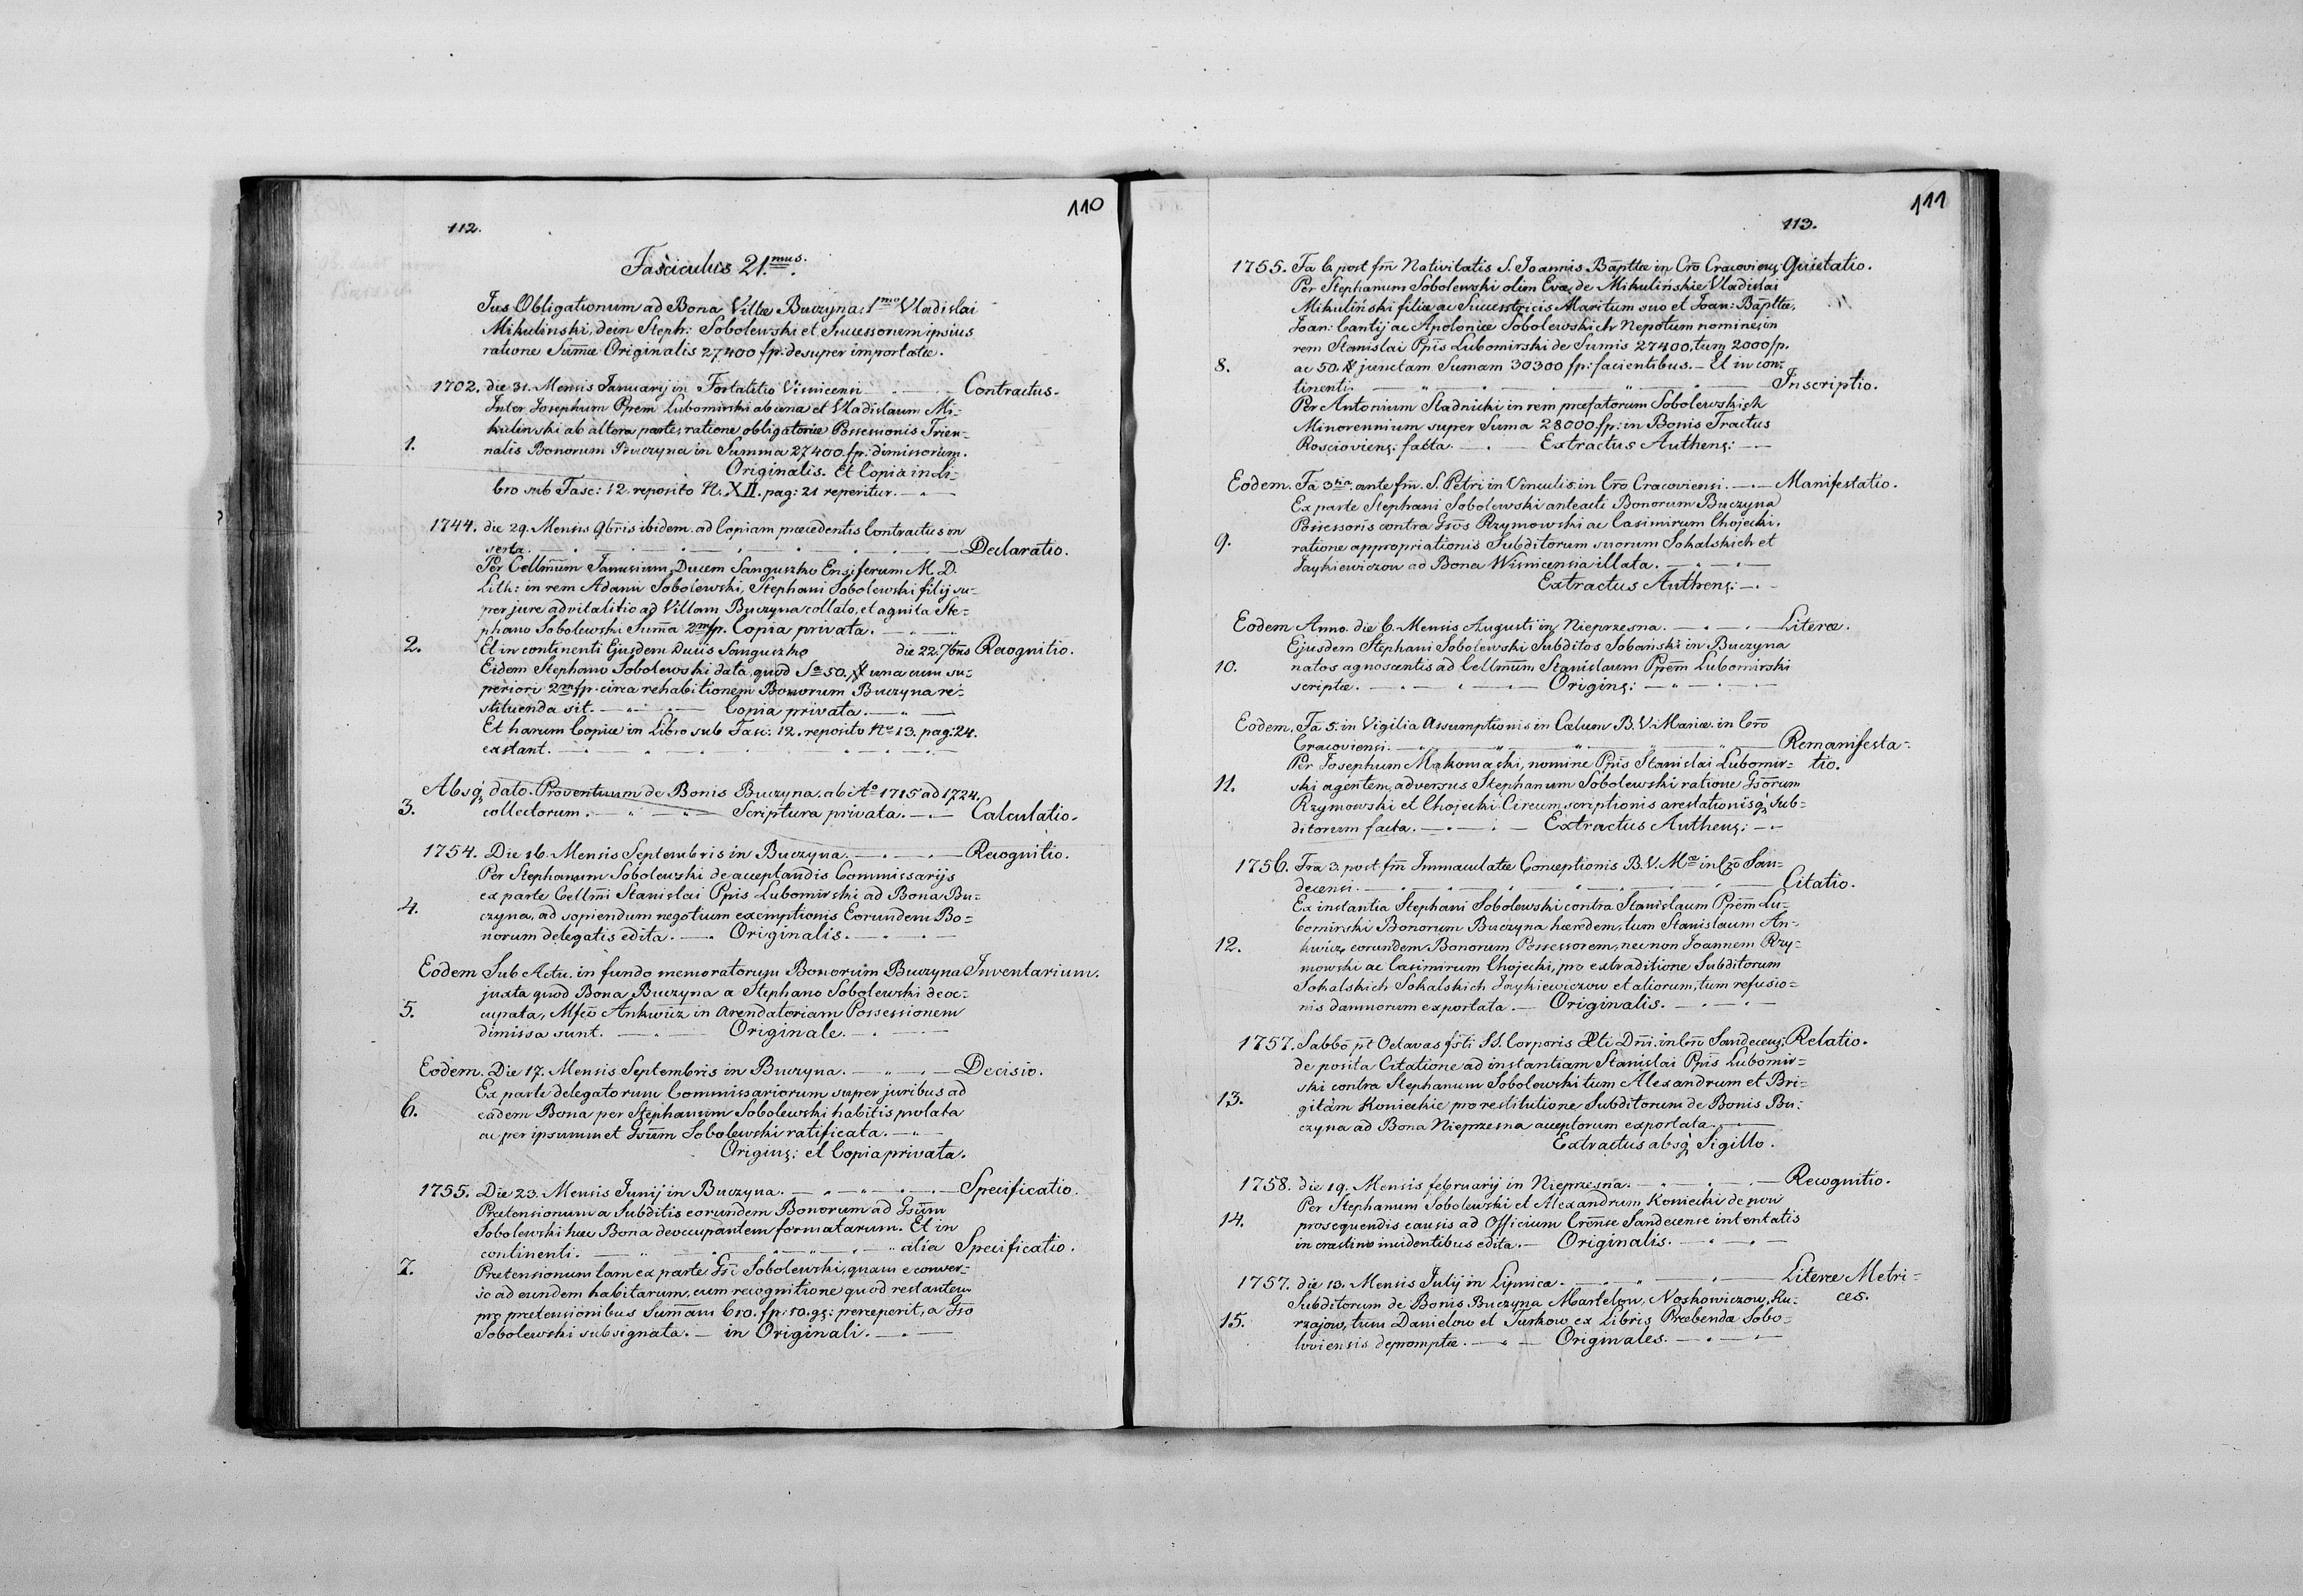 110
112.
Fasciculus 21.mus.
Jus Obligationum ad Bona Villæ Buczyna: 1mo Vladislai
Mikulinski, dein Steph: Sobolewski et Successorem ipsius
ratione Sum̄æ Originalis 27400 fp: desuper importatæ.
1702. die 31. Mensis Januarij in Fortalitio Visnicensi — Contractus.
Inter Josephum Pp̄em Lubomirski ab una et Vladislaum Mi-
kulinski ab altera parte, ratione obligatoriæ Possessionis Trien-
1. nalis Bonorum Buczyna in Summa 27400 fp: dimissorum.
Originalis. Et Copia in Li-
bro sub Fasc: 12. reposito N. XII. pag: 21 reperitur.
1744. die 29. Mensis 9bris ibidem. ad Copiam præcedentis Contractus in
serta. — Declaratio.
Per Cellm̄um Janusium, Ducem Sanguszko Ensiferum M. D.
Lith: in rem Adami Sobolewski, Stephani Sobolewski filij su-
per jure advitalitio ad Villam Buczyna collato, et agnita Ste-
phano Sobolewski Sum̄a 2m/fp. Copia privata.
2. Et in continenti Ejusdem Ducis Sanguszko die 22. 7bris Recognitio.
Eidem Stephano Sobolewski data, quod Sa 50. # una cum su-
periori 2m fp. circa rehabitionem Bonorum Buczyna re-
stituenda sit. — Copia privata.
Et harum Copiæ in Libro sub Fasc: 12. reposito No 13. pag: 24.
exstant.
Absq dato. Proventuum de Bonis Buczyna. ab Ao 1715 ad 1724.
3. collectorum. — Scriptura privata. — Calculatio.
1754. Die 16. Mensis Septembris in Buczyna. — Recognitio.
Per Stephanum Sobolewski de acceptandis Commissarijs
ex parte Cellmi Stanislai Ppis Lubomirski ad Bona Bu-
4. czyna, ad sopiendum negotium exemptionis Eorundem Bo-
norum delegatis edita. — Originalis.
Eodem Sub Actu. in fundo memoratorum Bonorum Buczyna Inventarium.
juxta quod Bona Buczyna a Stephano Sobolewski deoc-
5. cupata, Mfco Ankwicz in Arendatoriam Possessionem
dimissa sunt. — Originale.
Eodem. Die 17. Mensis Septembris in Buczyna. — Decisio.
Ex parte delegatorum Commissariorum super juribus ad
6. eadem Bona per Stephanum Sobolewski habitis prolata
ac per ipsummet Gsum Sobolewski ratificata.
Origin̄s: et Copia privata.
1755. Die 23. Mensis Junij in Buczyna. — Specificatio.
Prætensionum a Subditis eorundem Bonorum ad Gsum
Sobolewski hæc Bona deoccupantem formatarum. Et in
continenti. — alia Specificatio.
7. Prætensionum tam ex parte Gsi Sobolewski, quam e conver-
so ad eundem habitarum, cum recognitione quod restantem
pro prætensionibus Sum̄am 610. fp: 10. gs: perceperit, a Gso
Sobolewski subsignata. — in Originali.
111
113.
1755. Fa 6. post fm̄ Nativitatis S. Joannis Bapttæ in Cro Cracoviens: Quietatio.
Per Stephanum Sobolewski olim Evæ de Mikulińskie Vladislai
Mikuliński filiæ ac Successtricis Maritum suo et Joan: Bapttæ,
Joan: Cantij ac Apoloniæ Sobolewskich Nepotum nomine, in
rem Stanislai Ppis Lubomirski de Sumis 27400, tum 2000 fp.
8. ac 50. # junctam Sumam 30300 fp: facientibus. — Et in con-
tinenti. — Inscriptio.
Per Antonium Stadnicki in rem præfatorum Sobolewskich
Minorennium super Suma 28000 fp: in Bonis Tractus
Roscioviens: facta. — Extractus Authens:
Eodem. Fa 3tia ante fm̄. S. Petri in Vinculis in Cro Cracoviensi. — Manifestatio.
Ex parte Stephani Sobolewski anteacti Bonorum Buczyna
Possessoris contra Gsos Rzymowski ac Casimirum Chojecki,
9. ratione appropriationis Subditorum suorum Sokalskich et
Jaykiewiczow ad Bona Wisnicensia illata.
Extractus Authens:
Eodem Anno. die 6. Mensis Augusti in Nieprzesna. — Literæ.
Ejusdem Stephani Sobolewski Subditos Sobański in Buczyna
10. natos agnoscentis ad Cellmum Stanislaum Pp̄em Lubomirski
scriptæ. — Origins:
Eodem, Fa 5. in Vigilia Assumptionis in Cælum B. V. Mariæ. in Cro
Cracoviensi. — Remanifesta-
Per Josephum Mąkomaski, nomine Ppis Stanislai Lubomir- tio.
11. ski agentem, adversus Stephanum Sobolewski ratione Gsorum
Rzymowski et Chojecki Circumscriptionis arestationisq sub-
ditorum facta. — Extractus Authens:
1756. Fra 3. post fm̄ Immaculatæ Conceptionis B. V. Mæ in Cro San-
decensi. — Citatio.
Ex instantia Stephani Sobolewski contra Stanislaum Pp̄em Lu-
bomirski Bonorum Buczyna hæredem, tum Stanislaum An-
12. kwicz eorundem Bonorum Possessorem, nec non Joannem Rzy-
mowski ac Casimirum Chojecki, pro extraditione Subditorum
Sokalskich Sokalskich Jaykiewiczow et aliorum, tum refusio-
nis damnorum exportata. — Originalis.
1757. Sabbō pt Octavas fsti SS. Corporis Xti Dni. in Cro Sandecens: Relatio.
de posita Citatione ad instantiam Stanislai Ppis Lubomir-
ski contra Stephanum Sobolewski tum Alexandrum et Bri-
13. gitam Konieckie pro restitutione Subditorum de Bonis Bu-
czyna ad Bona Nieprzesna acceptorum exportata.
Extractus absq Sigillo.
1758. die 19. Mensis februarij in Nieprzesna. — Recognitio.
Per Stephanum Sobolewski et Alexandrum Koniecki de non
14. prosequendis causis ad Officium Crense Sandecense intentatis
in crastino incidentibus edita. — Originalis.
1757. die 13. Mensis Julij in Lipnica. — Literæ Metri-
Subditorum de Bonis Buczyna Martelow, Noskowiczow, Ku- ces.
15. rzajow, tum Danielow et Turkow ex Libris Præbendæ Sobo-
loviensis depromptæ. — Originales.